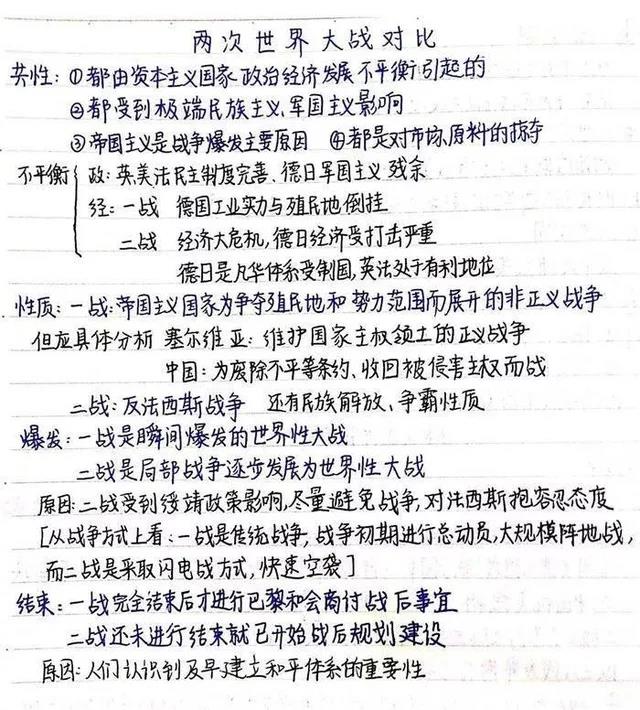 两次世界大战对比
共性：①都由资本主义国家政治经济发展不平衡引起的
②都受到极端民族主义、军国主义影响
③帝国主义是战争爆发主要原因 ④都是对市场、原料的掠夺
不平衡 政：英美法民主制度完善、德日军国主义残余
经：一战 德国工业实力与殖民地倒挂
二战 经济大危机，德日经济受打击严重
德日是凡华体系受制国，英法处于有利地位
性质：一战：帝国主义国家为争夺殖民地和势力范围而展开的非正义战争
但应具体分析 塞尔维亚：维护国家主权领土的正义战争
中国：为废除不平等条约、收回被侵害主权而战
二战：反法西斯战争 还有民族解放、争霸性质
爆发：一战是瞬间爆发的世界性大战
二战是局部战争逐步发展为世界性大战
原因：二战受到绥靖政策影响，尽量避免战争，对法西斯抱容忍态度
[从战争方式上看：一战是传统战争，战争初期进行总动员，大规模阵地战，
而二战是采取闪电战方式，快速空袭]
结束：一战完全结束后才进行巴黎和会商讨战后事宜
二战还未进行结束就已开始战后规划建设
原因：人们认识到及早建立和平体系的重要性